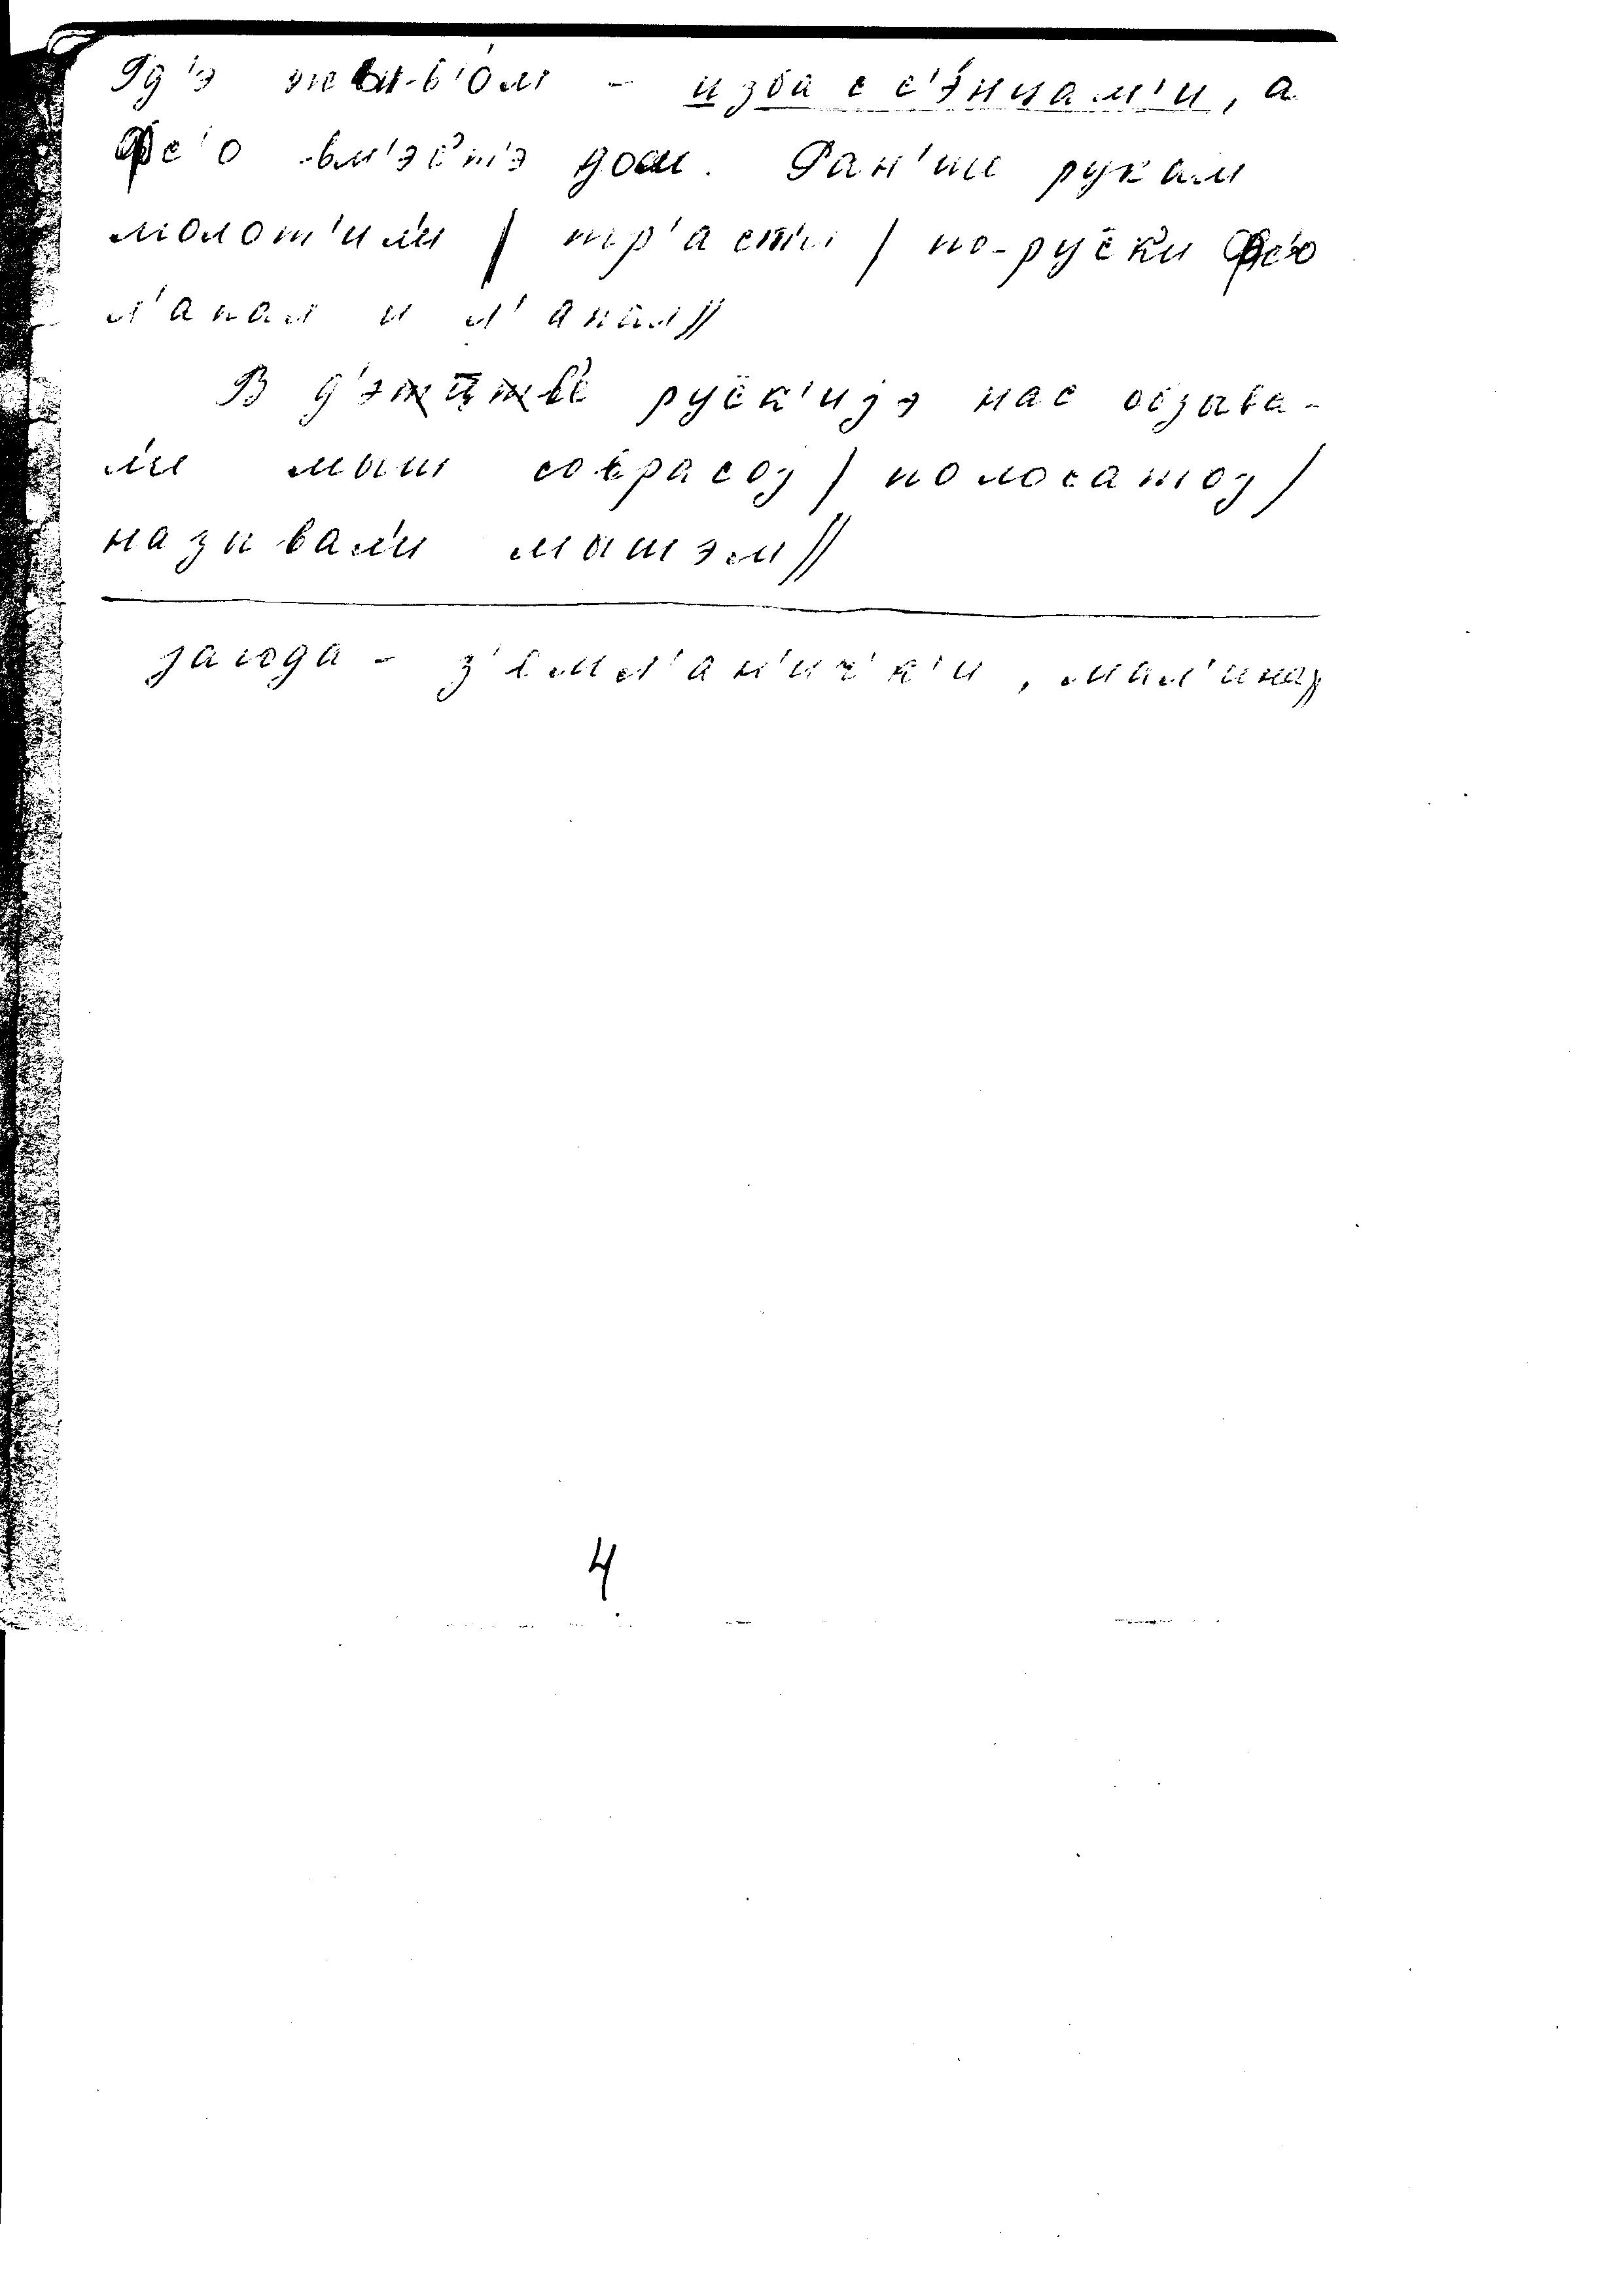 Гд'э жыв'о́м – изба с с'э́нцам'и, а
фс'о вм'э́с'т'э дом. Ран'ше рукам
молот'ил'и / тр'аст'и / по-рус'к'и фс'о
л'апал и л'апал//
В д'эцтв'е рус'к'иjэ нас обзыва-
л'и мыш соврасоj / полосатоj /
называл'и мышэм//
jагода – з'емл'ан'ич'к'и, мал'ина//
4